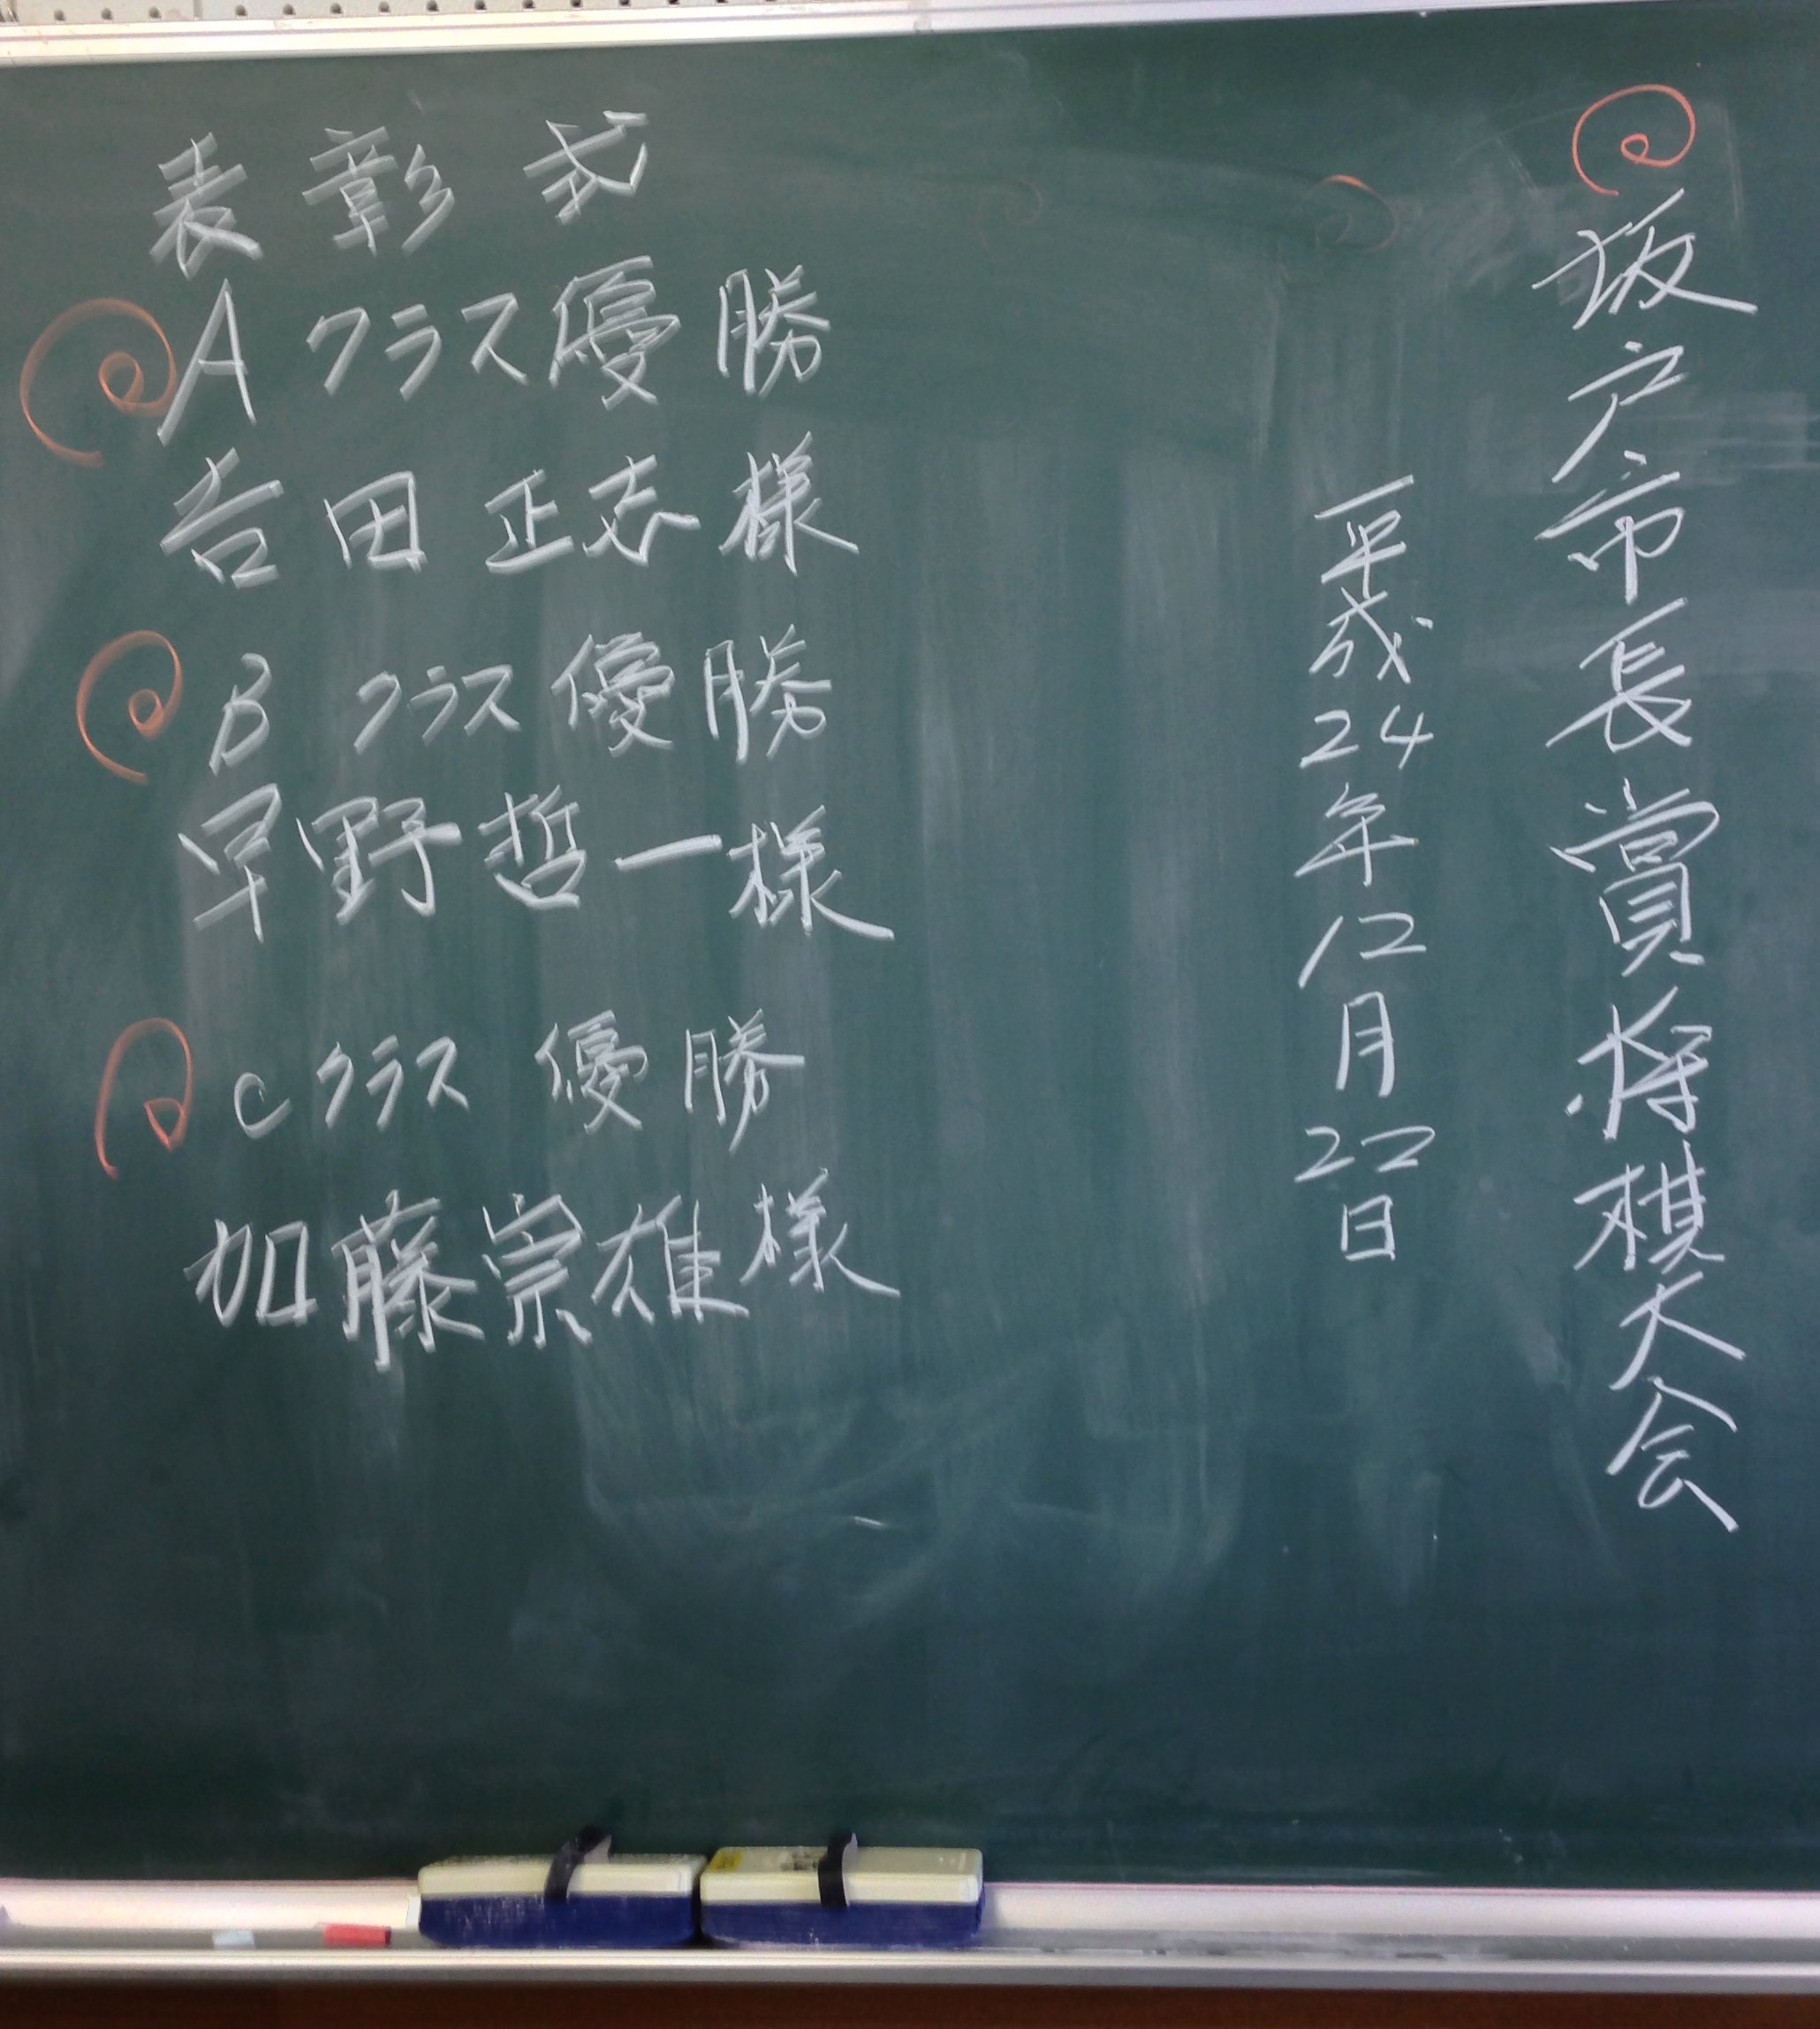 坂戸市長賞将棋大会
平成24年12月22日
表彰式
Aクラス優勝
吉田正志様
Bクラス優勝
早野哲一様
Cクラス優勝
加藤崇雄様